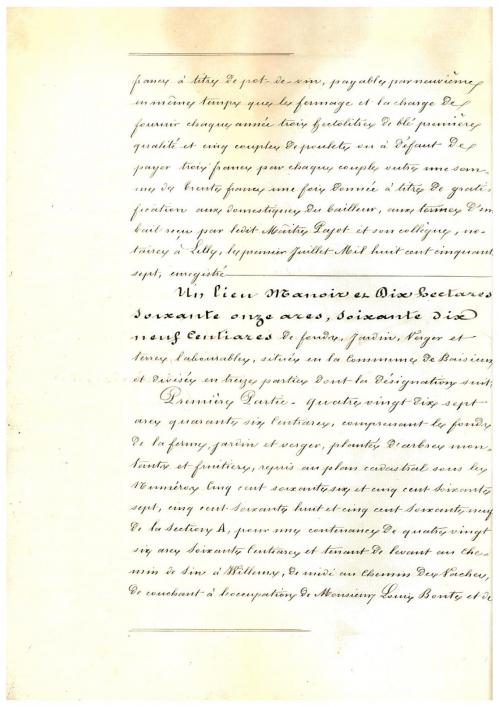 francs à titre de pot-de-vin, payables par neuvième
en même temps que le fermage et la charge de
fournir chaque année trois hectolitres de blé première
qualité et cinq couples de poulets ou à défaut de
payer trois francs par chaque couple outre une som-
me de trente francs une fois donnée à titre de grati-
fication aux domestiques du bailleur, aux termes d'un
bail reçu par ledit Maître Pajot et son collègue, no-
taires à Lille, le premier Juillet Mil huit cent cinquante
sept, enregistré
Un lieu Manoir et Dix hectares
soixante onze ares, soixante dix
neuf Centiares de fonds, Jardin, Verger et
terres labourables, situés en la Commune de Baisieux
et divisés en treize parties dont la désignation suit:
Première Partie - Quatre vingt dix sept
ares quarante six Centiares, comprenant les fonds
de la ferme, jardin et verger, plantés d'arbres mon-
tants et fruitiers, repris au plan cadastral sous les
Numéros Cinq cent soixante six et cinq cent soixante
sept, cinq cent soixante huit et cinq cent soixante neuf
de la Section A, pour une contenance de quatre vingt
six ares soixante Centiares et tenant de levant au che-
min de Sin à Willems, de midi au Chemin des Vaches,
de couchant à l'occupation de Monsieur Louis Bonte et de